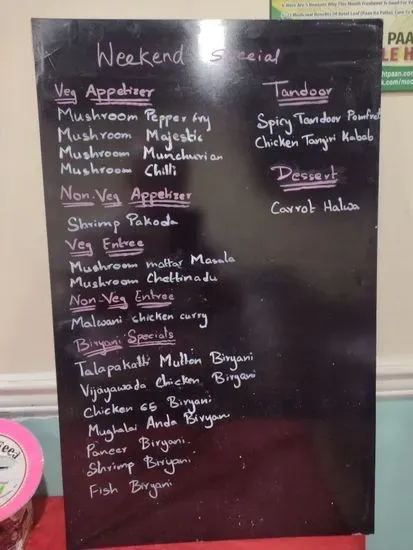 Weekend Special
Veg Appetizer
Mushroom Pepper fry
Mushroom Majestic
Mushroom Munchurian
Mushroom Chilli
Non-Veg Appetizer
Shrimp Pakoda
Veg Entree
Mushroom mattar Masala
Mushroom Chettinadu
Non-Veg Entree
Malwani chicken curry
Biryani Specials
Talapakatti Mutton Biryani
Vijayawada Chicken Biryani
Chicken 65 Biryani
Mughalai Anda Biryani
Paneer Biryani
Shrimp Biryani
Fish Biryani
Tandoor
Spicy Tandoor Pomfret
Chicken Tangri Kabab
Dessert
Carrot Halwa
PAA
LE H